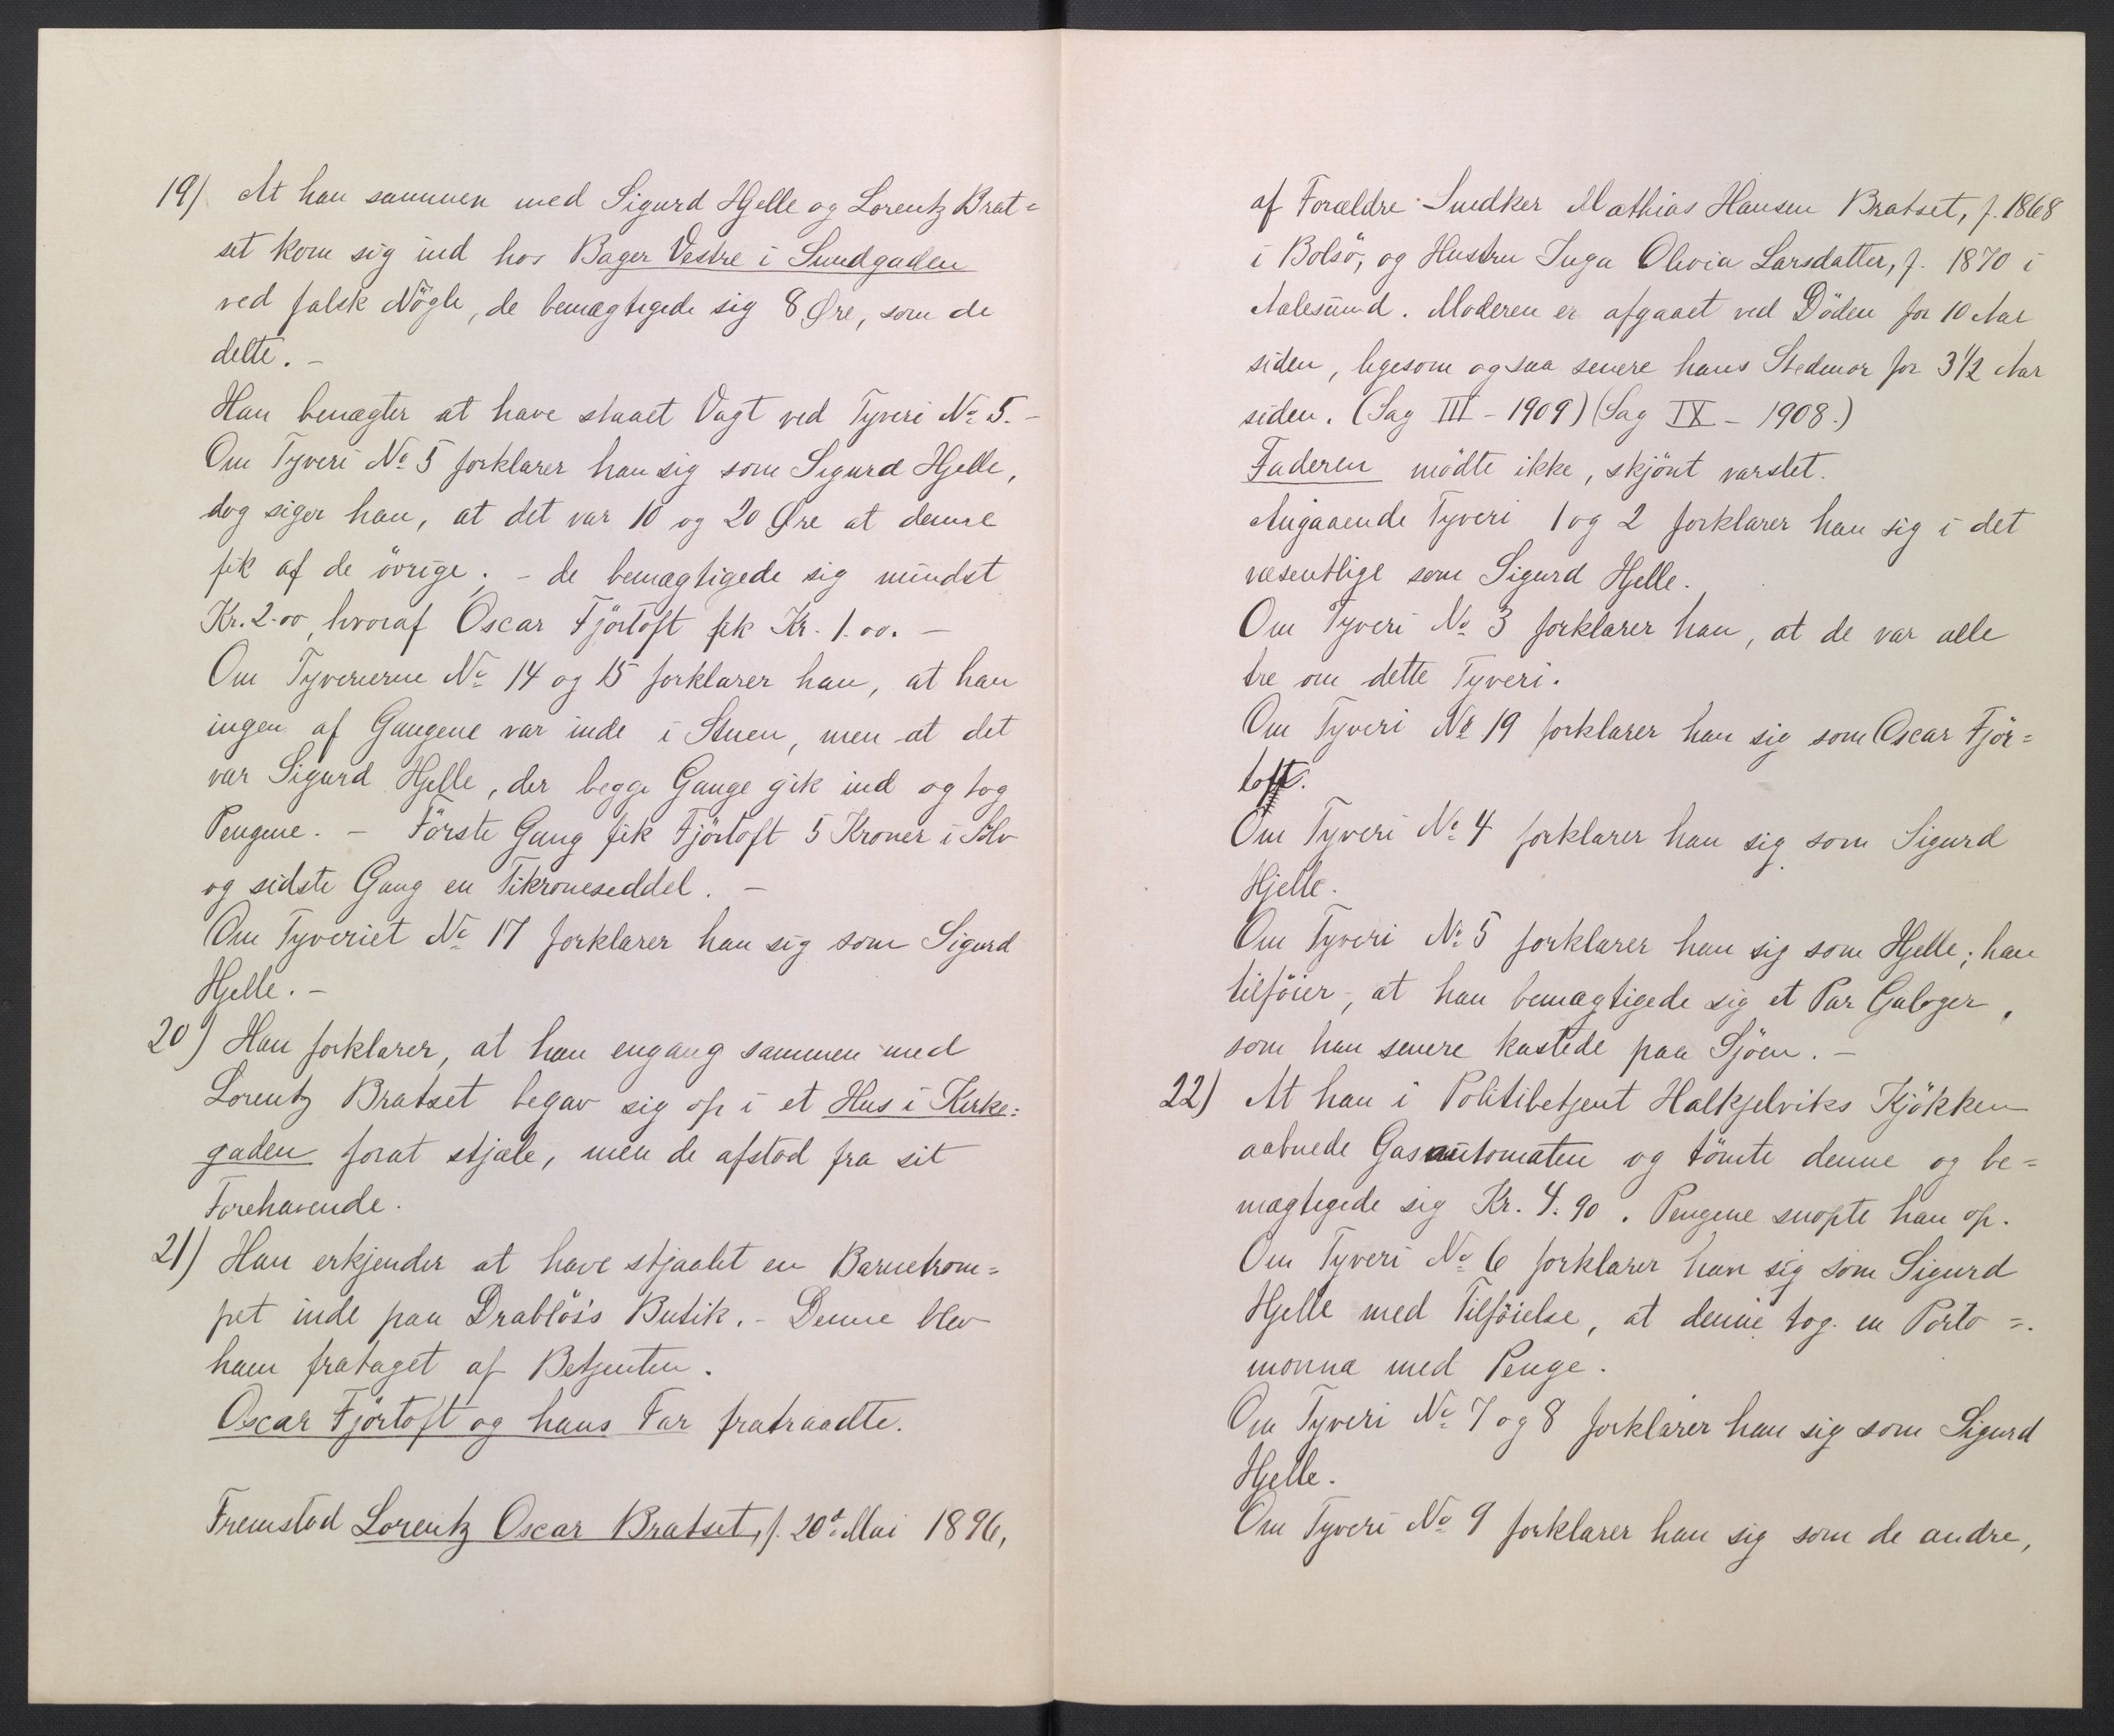 19) At han sammen med Sigurd Hjelle og Lorentz Brat=
set kom sig ind hos Bager Vestre i Sundgaden
ved falsk Nögle, de bemægtigede sig 8 Øre, som de
delte. –
Han benægter at have staaet Vagt ved Tyveri No 5. –
Om Tyveri No 5 forklarer han sig som Sigurd Hjelle,
dog siger han, at det var 10 og 20 Øre at denne
fik af de övrige. – de bemægtigede sig mindst
Kr. 2.00, hvoraf Oscar Fjörtoft fik Kr. 1.00. –
Om Tyverierne No 14 og 15 forklarer han, at han
ingen af Gangene var inde i Stuen, men at det
var Sigurd Hjelle, der begge Gange gik ind og tog
Pengene. – Förste Gang fik Fjörtoft 5 Kroner i Sölv
og sidste Gang en Tikroneseddel. –
Om Tyveriet No 17 forklarer han sig som Sigurd
Hjelle. –
20) Han forklarer, at han engang sammen med
Lorentz Bratset begav sig op i et Hus i Kirke=
gaden forat stjæle, men de afstod fra sit
Forehavende.
21) Han erkjender at have stjaalet en Barnetrom=
pet inde paa Drablös's Butik. – Denne blev
ham frataget af Betjenten.
Oscar Fjörtoft og hans Far fratraadte.
Fremstod Lorentz Oscar Bratset, f. 20de Mai 1896,
af Forældre Snedker Mathias Hansen Bratset, f. 1868
i Bolsö, og Hustru Inga Olivia Larsdatter, f. 1870 i
Aalesund. Moderen er afgaaet ved Döden for 10 Aar
siden, ligesom ogsaa senere hans Stedmor for 3 1/2 Aar
siden. (Sag III – 1909) (Sag IX – 1908.)
Faderen mödte ikke, skjönt varslet.
Angaaende Tyveri 1 og 2 forklarer han sig i det
væsentlige som Sigurd Hjelle.
Om Tyveri No 3 forklarer han, at de var alle
tre om dette Tyveri.
Om Tyveri No 19 forklarer han sig som Oscar Fjör=
toft.
Om Tyveri No 4 forklarer han sig som Sigurd
Hjelle.
Om Tyveri No 5 forklarer han sig som Hjelle; han
tilföier, at han bemægtigede sig et Par Galoger,
som han senere kastede paa Sjöen. –
22) At han i Politibetjent Halkjelviks Kjökken
aabnede Gasautomaten og tömte denne og be=
mægtigede sig Kr. 4.90. Pengene snopte han op.
Om Tyveri No 6 forklarer han sig som Sigurd
Hjelle med Tilföielse, at denne tog en Porto=
monna med Penge.
Om Tyveri No 7 og 8 forklarer han sig som Sigurd
Hjelle.
Om Tyveri No 9 forklarer han sig som de andre,